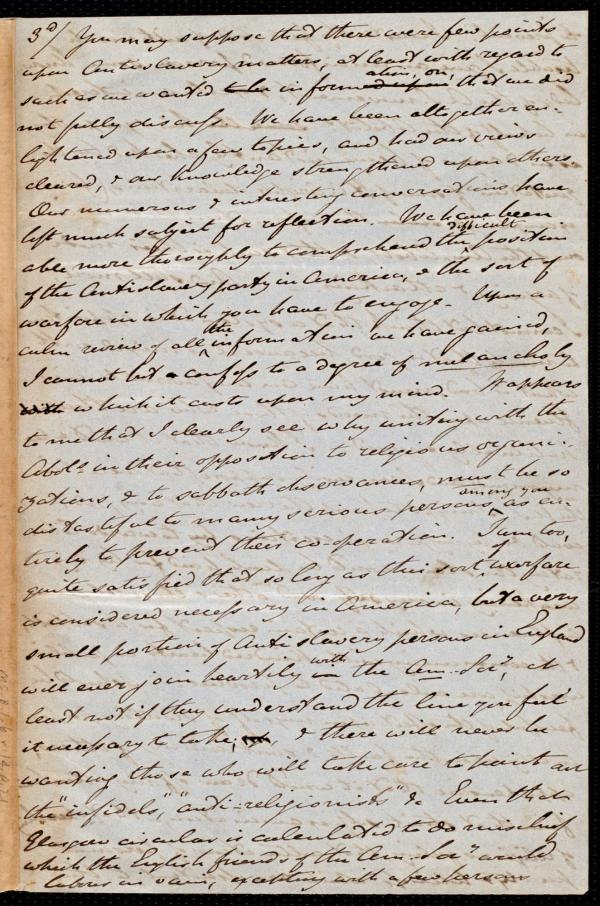 3d/ You may suppose that there were few points
upon Antislavery matters, at least with regard to
such as we wanted to be information, on, that we did
not fully discuss. We have been altogether en-
lightened upon a few topics, and had our views
cleared, & our knowledge strengthened upon others.
Our numerous & interesting conversations have
left much subject for reflection. We have been
able more thoroughly to comprehend the difficult position
of the Antislavery party in America, & the sort of
warfare in which you have to engage. Upon a
calm review of all the information we have gained,
I cannot but confess to a degree of melancholy
with which it casts upon my mind. It appears
to me that I clearly see why uniting with the
Abols in their opposition to religious organi-
zations, & to sabbath observances, must be so
distasteful to many serious persons among you as en-
tirely to prevent their co-operation. I am too,
quite satisfied that so long as this sort of warfare
is considered necessary in America, but a very
small portion of Anti slavery persons in England
will ever join heartily with the Am. Socy, at
least not if they understand the line you feel
it necessary to take, & there will never be
wanting those who will take care to point out
the "infidels," "anti-religionists" &c Even that
Glasgow circular is calculated to do mischief
which the English friends of the Am. Socy would
labour in vain, excepting with a few persons